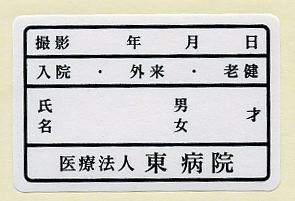 撮影 年 月 日
入院 ・ 外来 ・ 老健
氏名 男女 才
医療法人 東 病院